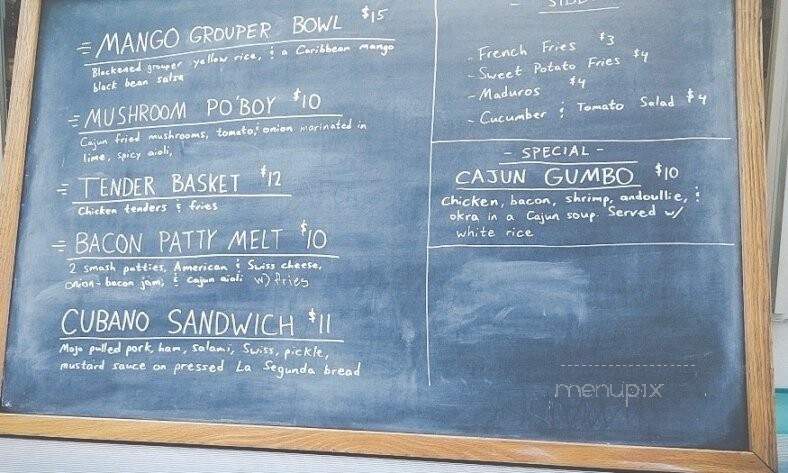 MANGO GROUPER BOWL $15
Blackened grouper, yellow rice, & a Caribbean mango
black bean salsa
MUSHROOM PO'BOY $10
Cajun fried mushrooms, tomato, onion marinated in
lime, spicy aioli,
TENDER BASKET $12
Chicken tenders & fries
BACON PATTY MELT $10
2 smash patties, American & Swiss cheese,
onion-bacon jam, & cajun aioli w/ fries
CUBANO SANDWICH $11
Mojo pulled pork, ham, salami, Swiss, pickle,
mustard sauce on pressed La Segunda bread
- French Fries $3
- Sweet Potato Fries $4
- Maduros $4
- Cucumber & Tomato Salad $4
- SPECIAL -
CAJUN GUMBO $10
Chicken, bacon, shrimp, andoullie, &
okra in a Cajun soup. Served w/
white rice
menupix